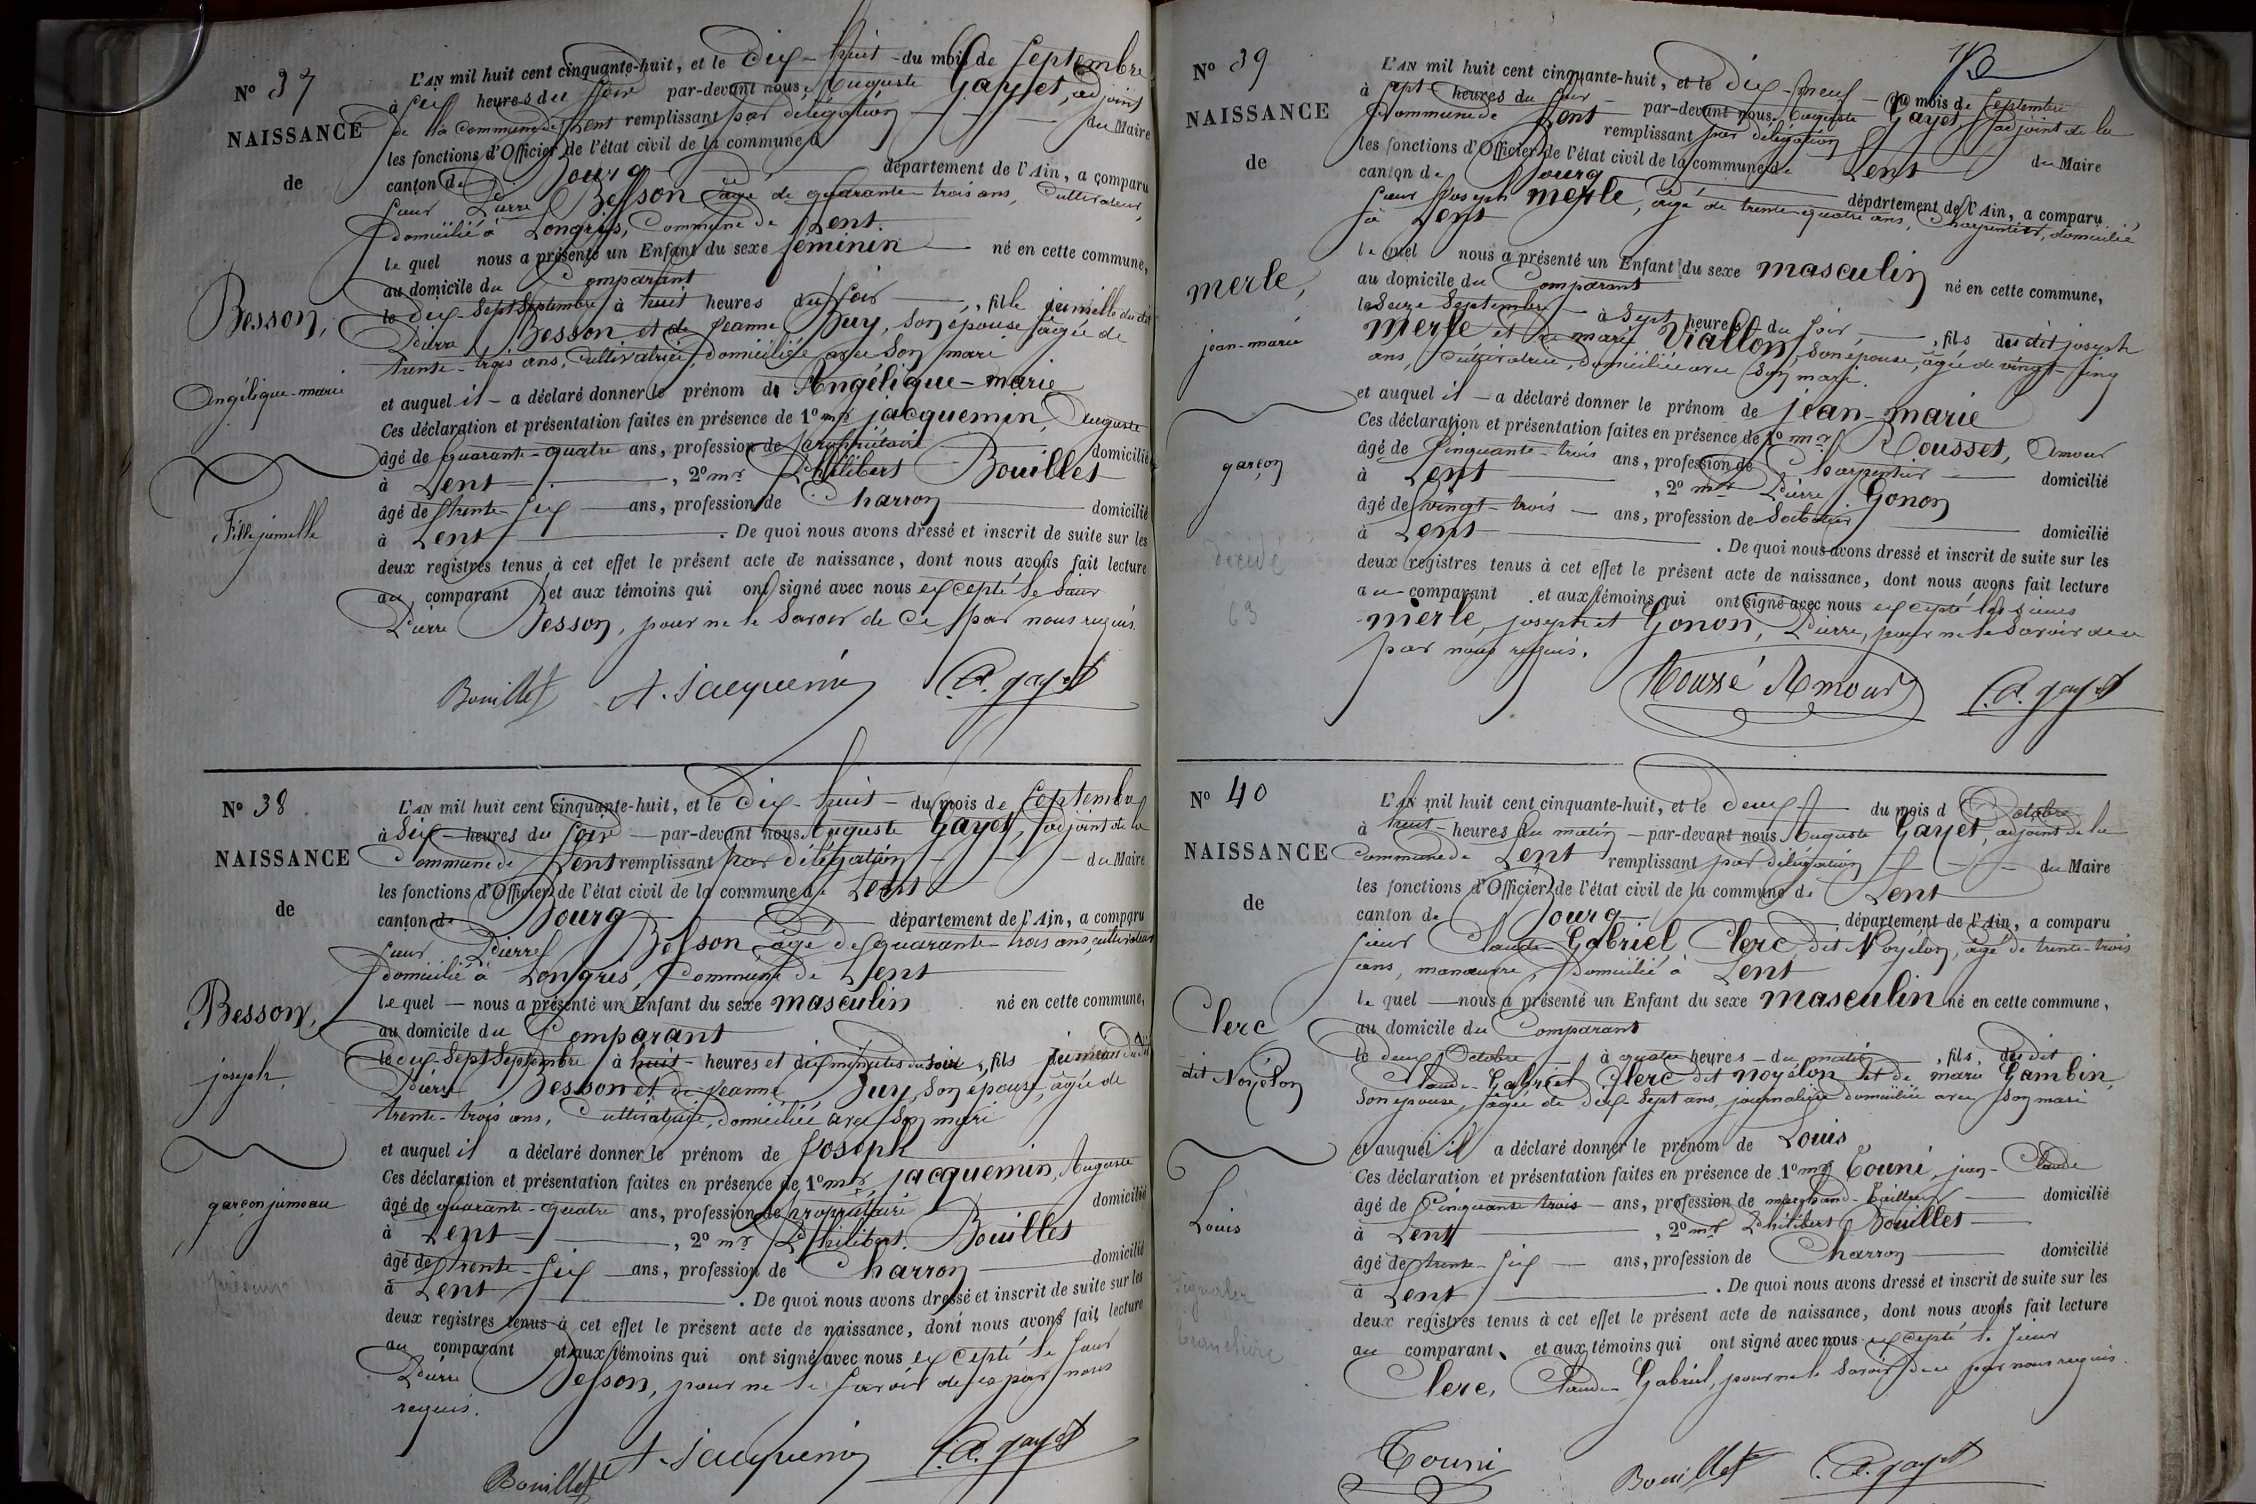 N° 37
NAISSANCE
de
Besson,
Angélique-marie
Fille jumelle
L'AN mil huit cent cinquante-huit, et le Dix-huit du mois de Septembre
à Six heures du Soir par-devant nous, Auguste Gayet, adjoint
de la Commune de Lent remplissant par délégation du Maire
les fonctions d'Officier de l'état civil de la commune d
canton de Bourg département de l'Ain, a comparu
Sieur Pierre Besson âgé de quarante-trois ans, Cultivateur,
domicilié à Longris, Commune de Lent.
le quel nous a présenté un Enfant du sexe féminin né en cette commune,
au domicile du Comparant
le dix-Sept Septembre à huit heures du Soir, fille jumelle du dit
Pierre Besson et de Jeanne Buy, son épouse âgée de
trente-trois ans, Cultivatrice, domiciliée avec Son mari
et auquel il a déclaré donner le prénom de Angélique-marie
Ces déclaration et présentation faites en présence de 1° mr jacquemin, Auguste
âgé de quarante-quatre ans, profession de propriétaire domicilié
à Lent, 2° mr Philibert Bouillet
âgé de trente-six ans, profession de Charron domicilié
à Lent. De quoi nous avons dressé et inscrit de suite sur les
deux registres tenus à cet effet le présent acte de naissance, dont nous avons fait lecture
au comparant et aux témoins qui ont signé avec nous excepté le Sieur
Pierre Besson, pour ne le Savoir de ce par nous requis.
Bouillet A. Jacquemin A. gayet
N° 38
NAISSANCE
de
Besson,
joseph,
garçon jumeau
L'AN mil huit cent cinquante-huit, et le Dix-huit du mois de Septembre
à Six heures du Soir par-devant nous Auguste Gayet, adjoint de la
Commune de Lent remplissant par délégation du Maire
les fonctions d'Officier de l'état civil de la commune de Lent
canton de Bourg département de l'Ain, a comparu
Sieur Pierre Besson âgé de quarante-trois ans, cultivateur
domicilié à Longris, Commune de Lent
le quel nous a présenté un Enfant du sexe masculin né en cette commune,
au domicile du Comparant
le dix-Sept Septembre à huit heures et dix minutes du soir, fils jumeau du dit
Pierre Besson et de Jeanne Buy, son épouse, âgée de
trente-trois ans, Cultivatrice, domiciliée avec Son mari
et auquel il a déclaré donner le prénom de Joseph
Ces déclaration et présentation faites en présence de 1° mr jacquemin, Auguste
âgé de quarante-quatre ans, profession de propriétaire domicilié
à Lent, 2° mr Philibert Bouillet
âgé de trente-six ans, profession de Charron domicilié
à Lent. De quoi nous avons dressé et inscrit de suite sur les
deux registres tenus à cet effet le présent acte de naissance, dont nous avons fait lecture
au comparant et aux témoins qui ont signé avec nous excepté le Sieur
Pierre Besson, pour ne le Savoir de ce par nous
requis.
Bouillet A. Jacquemin A. gayet
N° 39
NAISSANCE
de
merle,
jean-marie
garçon
décédé
63
L'AN mil huit cent cinquante-huit, et le Dix-neuf du mois de Septembre
à Sept heures du Soir par-devant nous, Auguste Gayet, adjoint de la
Commune de Lent remplissant par délégation du Maire
les fonctions d'Officier de l'état civil de la commune de Lent
canton de Bourg département de l'Ain, a comparu
Sieur Joseph merle, âgé de trente-quatre ans, Charpentier, domicilié
à Lent
le quel nous a présenté un Enfant du sexe masculin né en cette commune,
au domicile du Comparant
le Seize Septembre à Sept heures du Soir, fils du dit joseph
merle et de marie Viallon, Son épouse, âgée de vingt-cinq
ans, Cultivatrice, domiciliée avec Son mari.
et auquel il a déclaré donner le prénom de jean-marie
Ces déclaration et présentation faites en présence de 1° mr Rousset, Amour
âgé de Cinquante-trois ans, profession de Charpentier domicilié
à Lent, 2° mr Pierre Gonon
âgé de vingt-trois ans, profession de Sabotier domicilié
à Lent. De quoi nous avons dressé et inscrit de suite sur les
deux registres tenus à cet effet le présent acte de naissance, dont nous avons fait lecture
au comparant et aux témoins qui ont signé avec nous excepté les sieurs
merle, joseph et Gonon, Pierre, pour ne le Savoir de ce
par nous requis.
Roussé Amour A. gayet
N° 40
NAISSANCE
de
Clerc
dit Noyelon
Louis
L'AN mil huit cent cinquante-huit, et le deux du mois d Octobre
à huit heures du matin par-devant nous Auguste Gayet, adjoint de la
Commune de Lent remplissant par délégation du Maire
les fonctions d'Officier de l'état civil de la commune de Lent
canton de Bourg département de l'Ain, a comparu
Sieur Claude-Gabriel Clerc dit Noyelon, âgé de trente-trois
ans, manœuvre, domicilié à Lent
le quel nous a présenté un Enfant du sexe masculin né en cette commune,
au domicile du Comparant
le deux Octobre à quatre heures du matin, fils du dit
Claude-Gabriel Clerc dit noyelon et de marie Gambin,
Son épouse, âgée de dix-Sept ans, journalière domiciliée avec Son mari
et auquel il a déclaré donner le prénom de Louis
Ces déclaration et présentation faites en présence de 1° mr Touni, jean-Claude
âgé de Cinquante trois ans, profession de marchand-Tailleur domicilié
à Lent, 2° mr Philibert Bouillet
âgé de trente-six ans, profession de Charron domicilié
à Lent. De quoi nous avons dressé et inscrit de suite sur les
deux registres tenus à cet effet le présent acte de naissance, dont nous avons fait lecture
au comparant et aux témoins qui ont signé avec nous excepté le Sieur
Clerc, Claude-Gabriel, pour ne le Savoir de ce par nous requis.
Touni Bouillet A. gayet